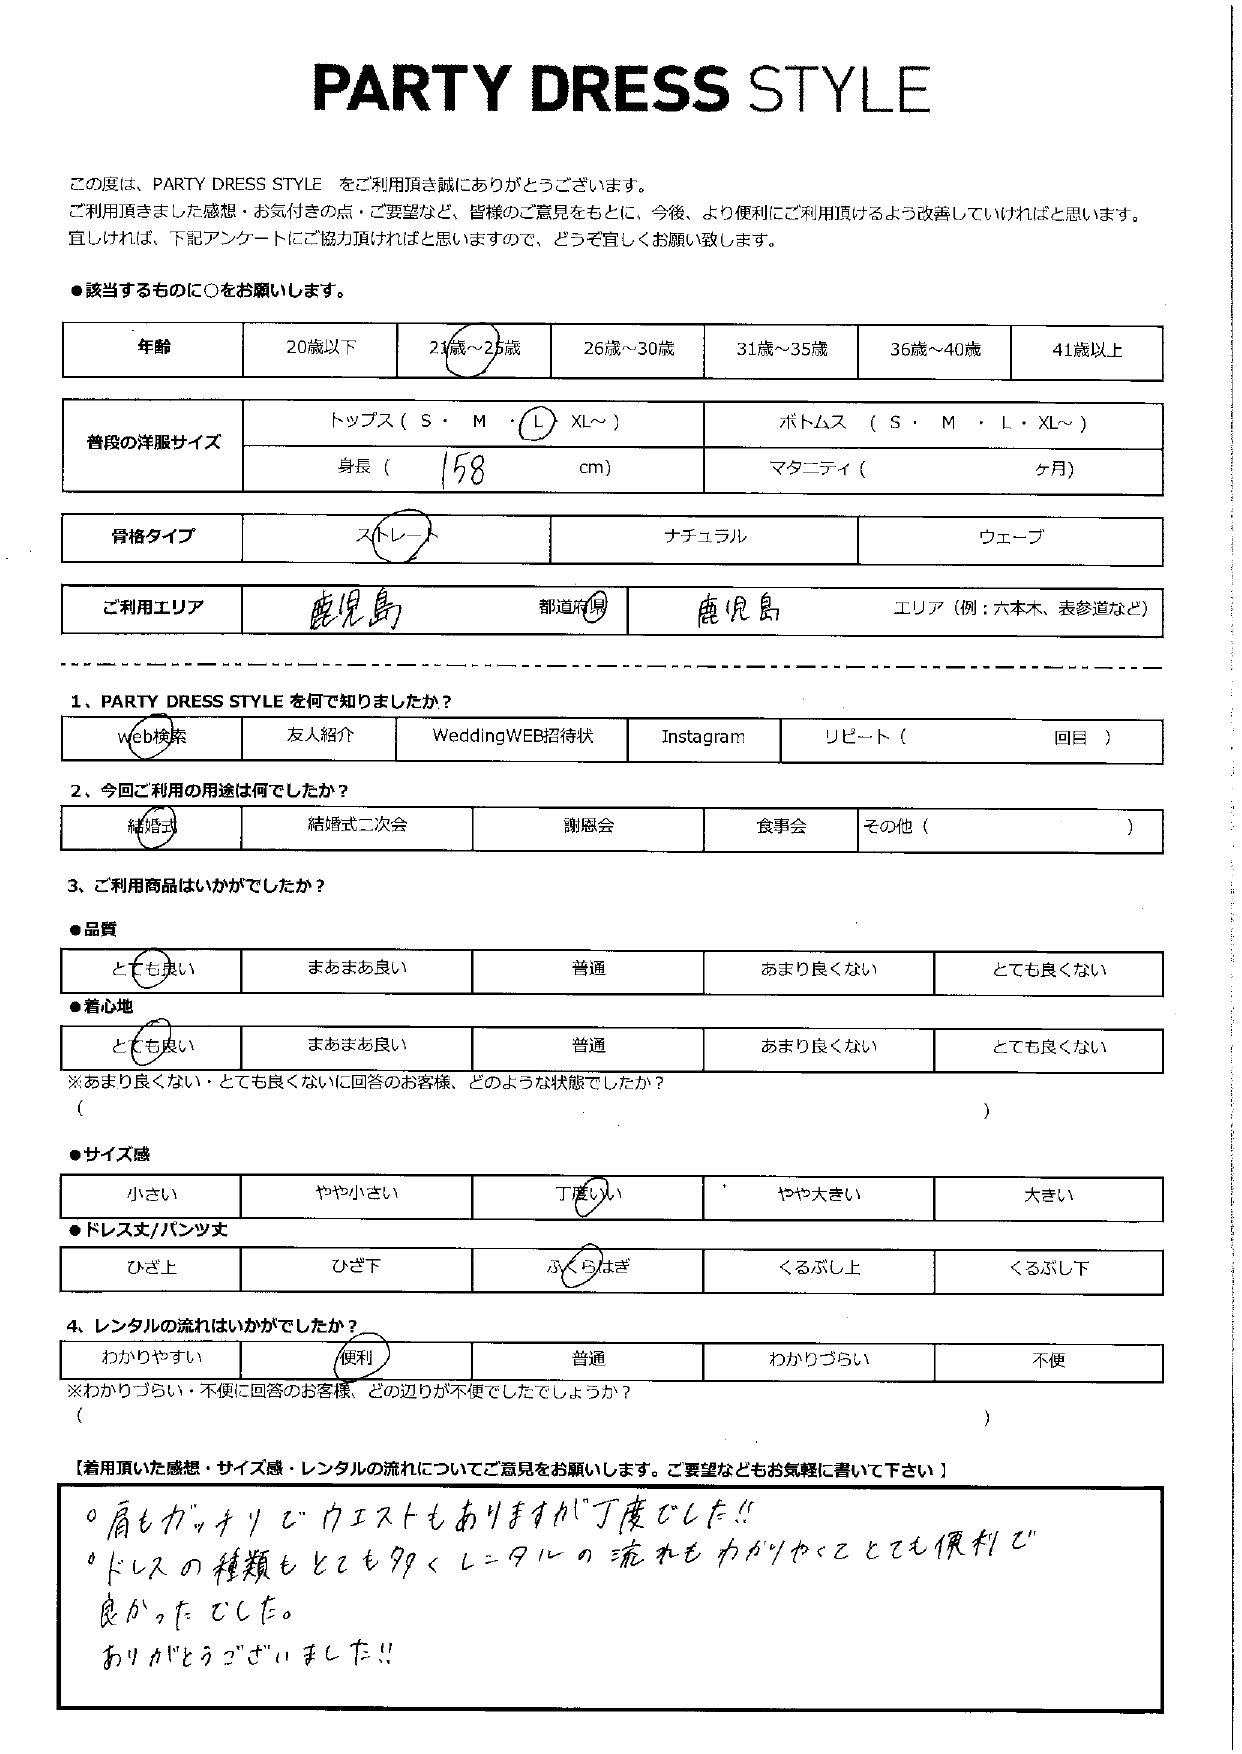 PARTY DRESS STYLE
この度は、PARTY DRESS STYLE をご利用頂き誠にありがとうございます。
ご利用頂きました感想・お気付きの点・ご要望など、皆様のご意見をもとに、今後、より便利にご利用頂けるよう改善していければと思います。
宜しければ、下記アンケートにご協力頂ければと思いますので、どうぞ宜しくお願い致します。
●該当するものに○をお願いします。
年齢 20歳以下 21歳～25歳 26歳～30歳 31歳～35歳 36歳～40歳 41歳以上
普段の洋服サイズ
トップス ( S ・ M ・ L ・ XL～ ) ボトムス ( S ・ M ・ L ・ XL～ )
身長 ( 158 cm) マタニティ ( ヶ月)
骨格タイプ ストレート ナチュラル ウェーブ
ご利用エリア 鹿児島 都道府県 鹿児島 エリア（例：六本木、表参道など）
1、PARTY DRESS STYLE を何で知りましたか？
web検索 友人紹介 WeddingWEB招待状 Instagram リピート（ 回目 ）
2、今回ご利用の用途は何でしたか？
結婚式 結婚式二次会 謝恩会 食事会 その他（ ）
3、ご利用商品はいかがでしたか？
●品質
とても良い まあまあ良い 普通 あまり良くない とても良くない
●着心地
とても良い まあまあ良い 普通 あまり良くない とても良くない
※あまり良くない・とても良くないに回答のお客様、どのような状態でしたか？
( )
●サイズ感
小さい やや小さい 丁度いい やや大きい 大きい
●ドレス丈/パンツ丈
ひざ上 ひざ下 ふくらはぎ くるぶし上 くるぶし下
4、レンタルの流れはいかがでしたか？
わかりやすい 便利 普通 わかりづらい 不便
※わかりづらい・不便に回答のお客様、どの辺りが不便でしたでしょうか？
( )
【着用頂いた感想・サイズ感・レンタルの流れについてご意見をお願いします。ご要望などもお気軽に書いて下さい 】
○肩もガッチリでウエストもありますが丁度でした!!
○ドレスの種類もとても多くレンタルの流れもわかりやくてとても便利で
良かったでした。
ありがとうございました!!